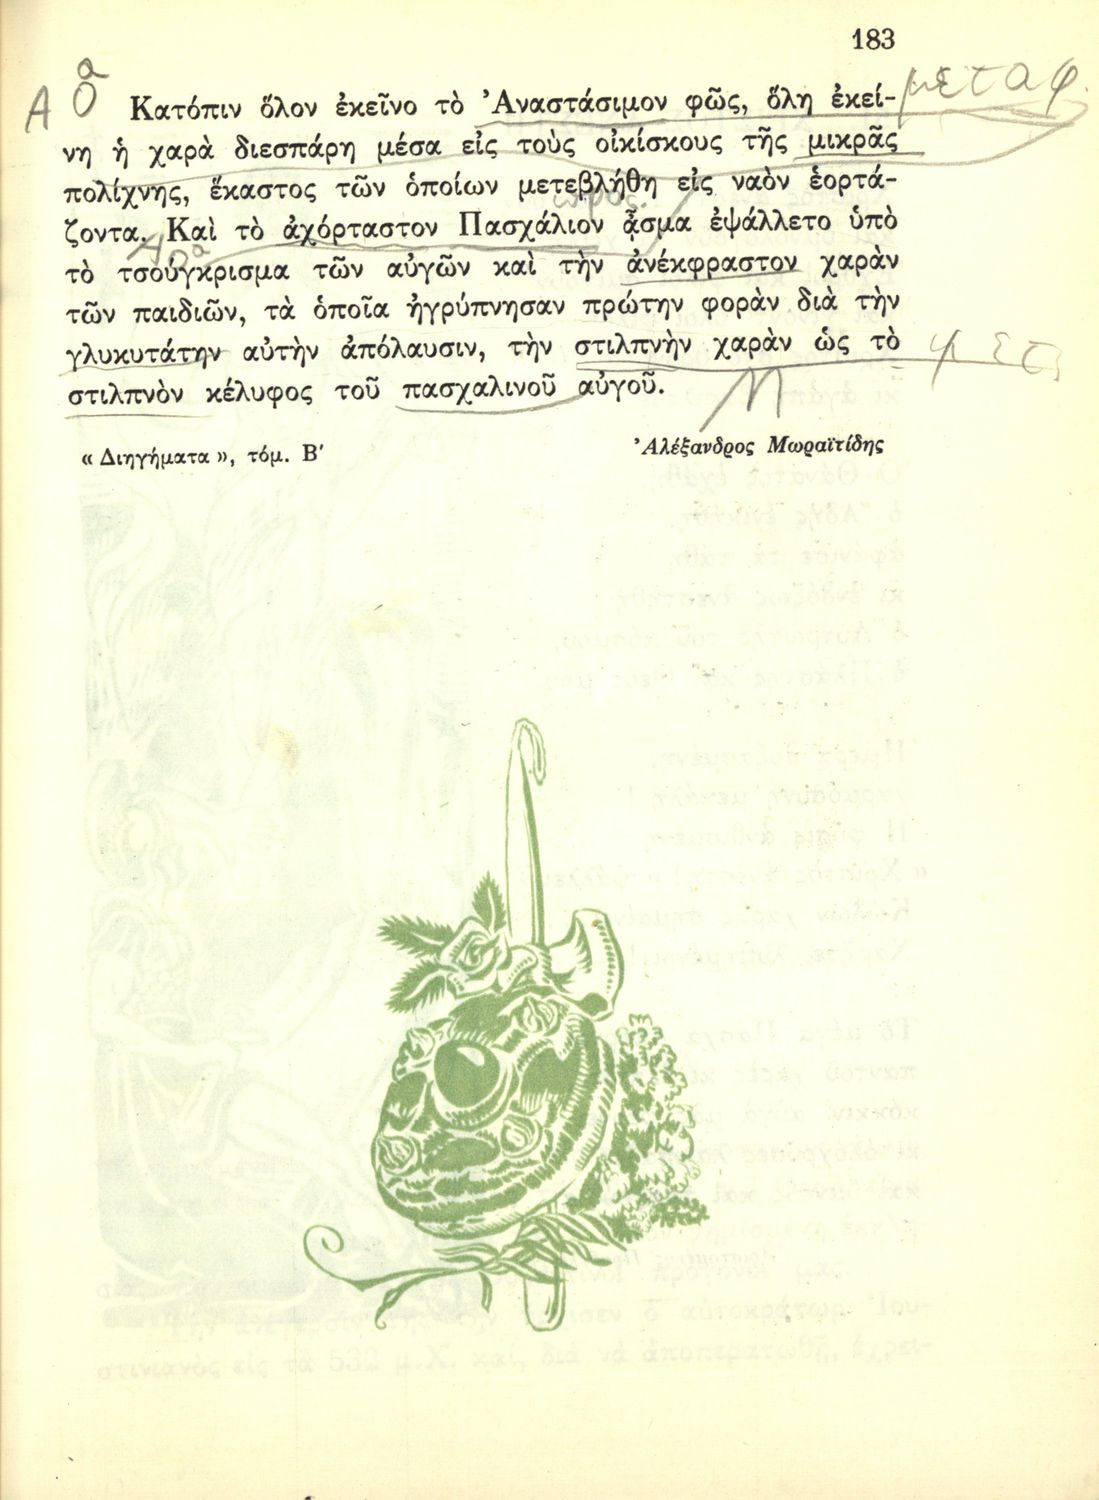 183
Κατόπιν ὅλον ἐκεῖνο τὸ Ἀναστάσιμον φῶς, ὅλη ἐκεί-
νη ἡ χαρὰ διεσπάρη μέσα εἰς τοὺς οἰκίσκους τῆς μικρᾶς
πολίχνης, ἕκαστος τῶν ὁποίων μετεβλήθη εἰς ναὸν ἑορτά-
ζοντα. Καὶ τὸ ἀχόρταστον Πασχάλιον ᾆσμα ἐψάλλετο ὑπὸ
τὸ τσούγκρισμα τῶν αὐγῶν καὶ τὴν ἀνέκφραστον χαρὰν
τῶν παιδιῶν, τὰ ὁποῖα ἠγρύπνησαν πρώτην φορὰν διὰ τὴν
γλυκυτάτην αὐτὴν ἀπόλαυσιν, τὴν στιλπνὴν χαρὰν ὡς τὸ
στιλπνὸν κέλυφος τοῦ πασχαλινοῦ αὐγοῦ.
« Διηγήματα », τόμ. Β′ Ἀλέξανδρος Μωραϊτίδης
μεταφ.